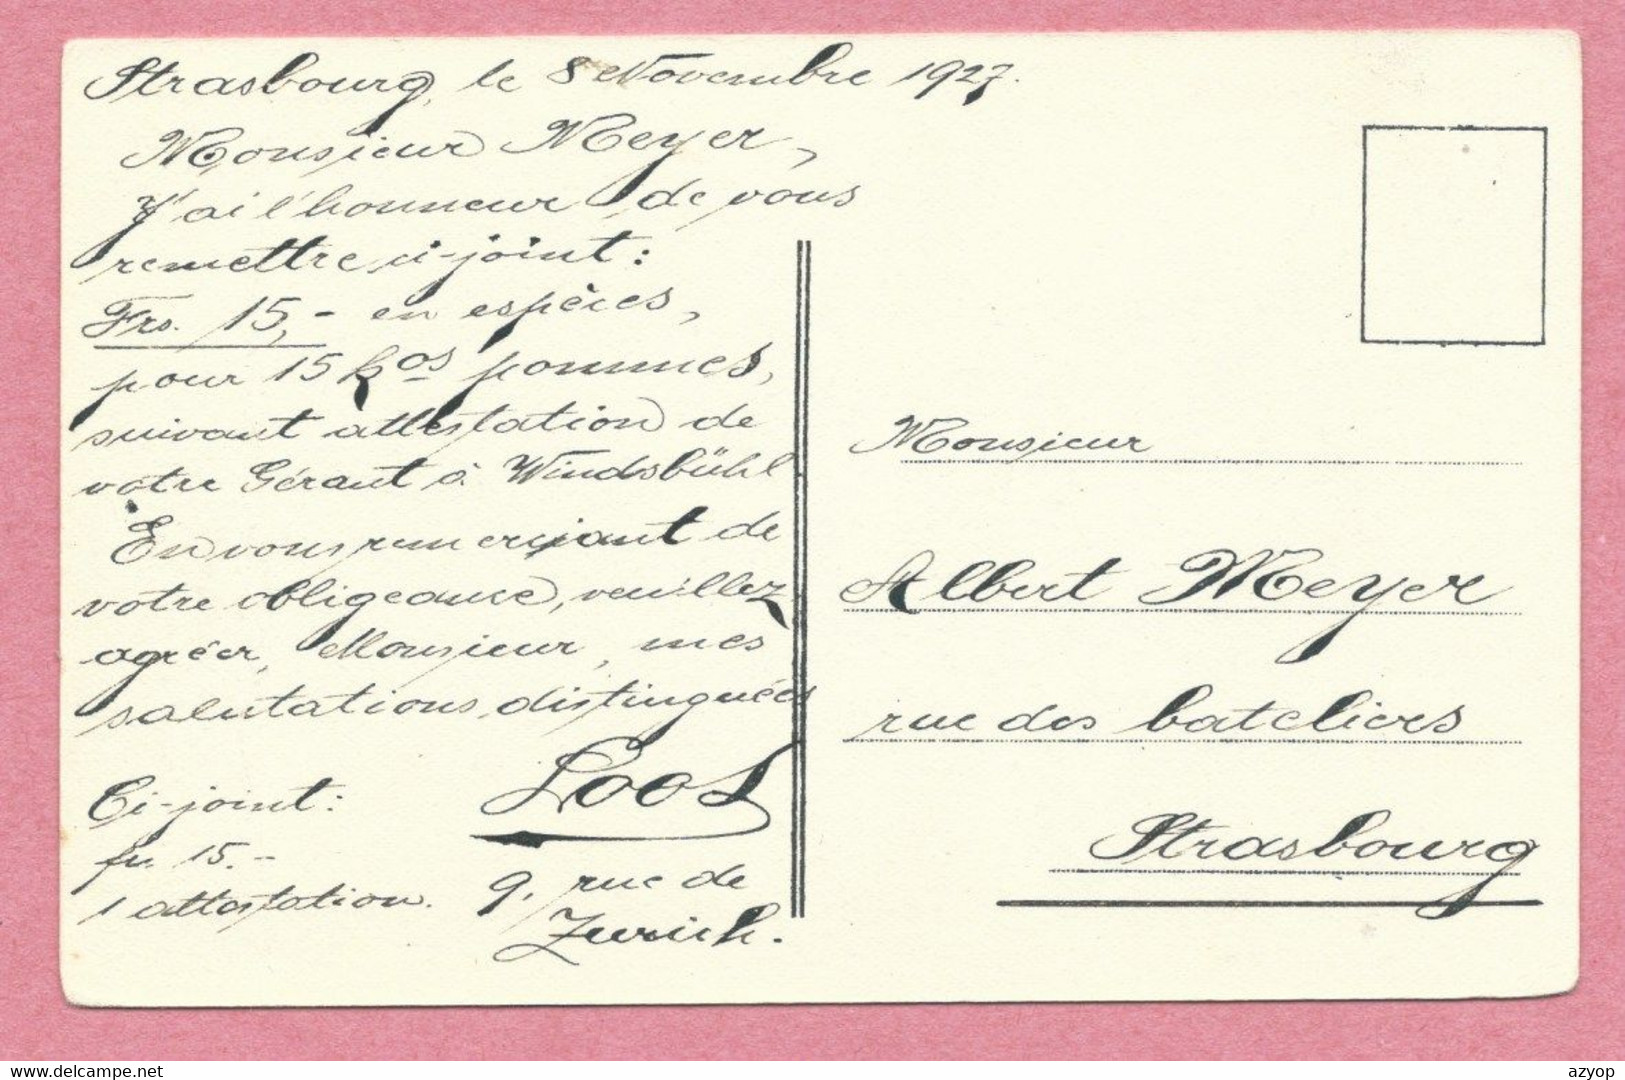 Strasbourg, le 8 Novembre 1927.
Monsieur Meyer,
J'ai l'honneur de vous
remettre ci-joint:
Frs. 15,- en espèces,
pour 15 kos pommes,
suivant attestation de
votre Gérant à Windsbühl.
En vous remerciant de
votre obligeance, veuillez
agréer, Monsieur, mes
salutations distinguées
Loos
9, rue de
Zurich.
Ci-joint:
fr. 15.-
1 attestation.
Monsieur
Albert Meyer
rue des bateliers
Strasbourg
www.delcampe.net
azyop